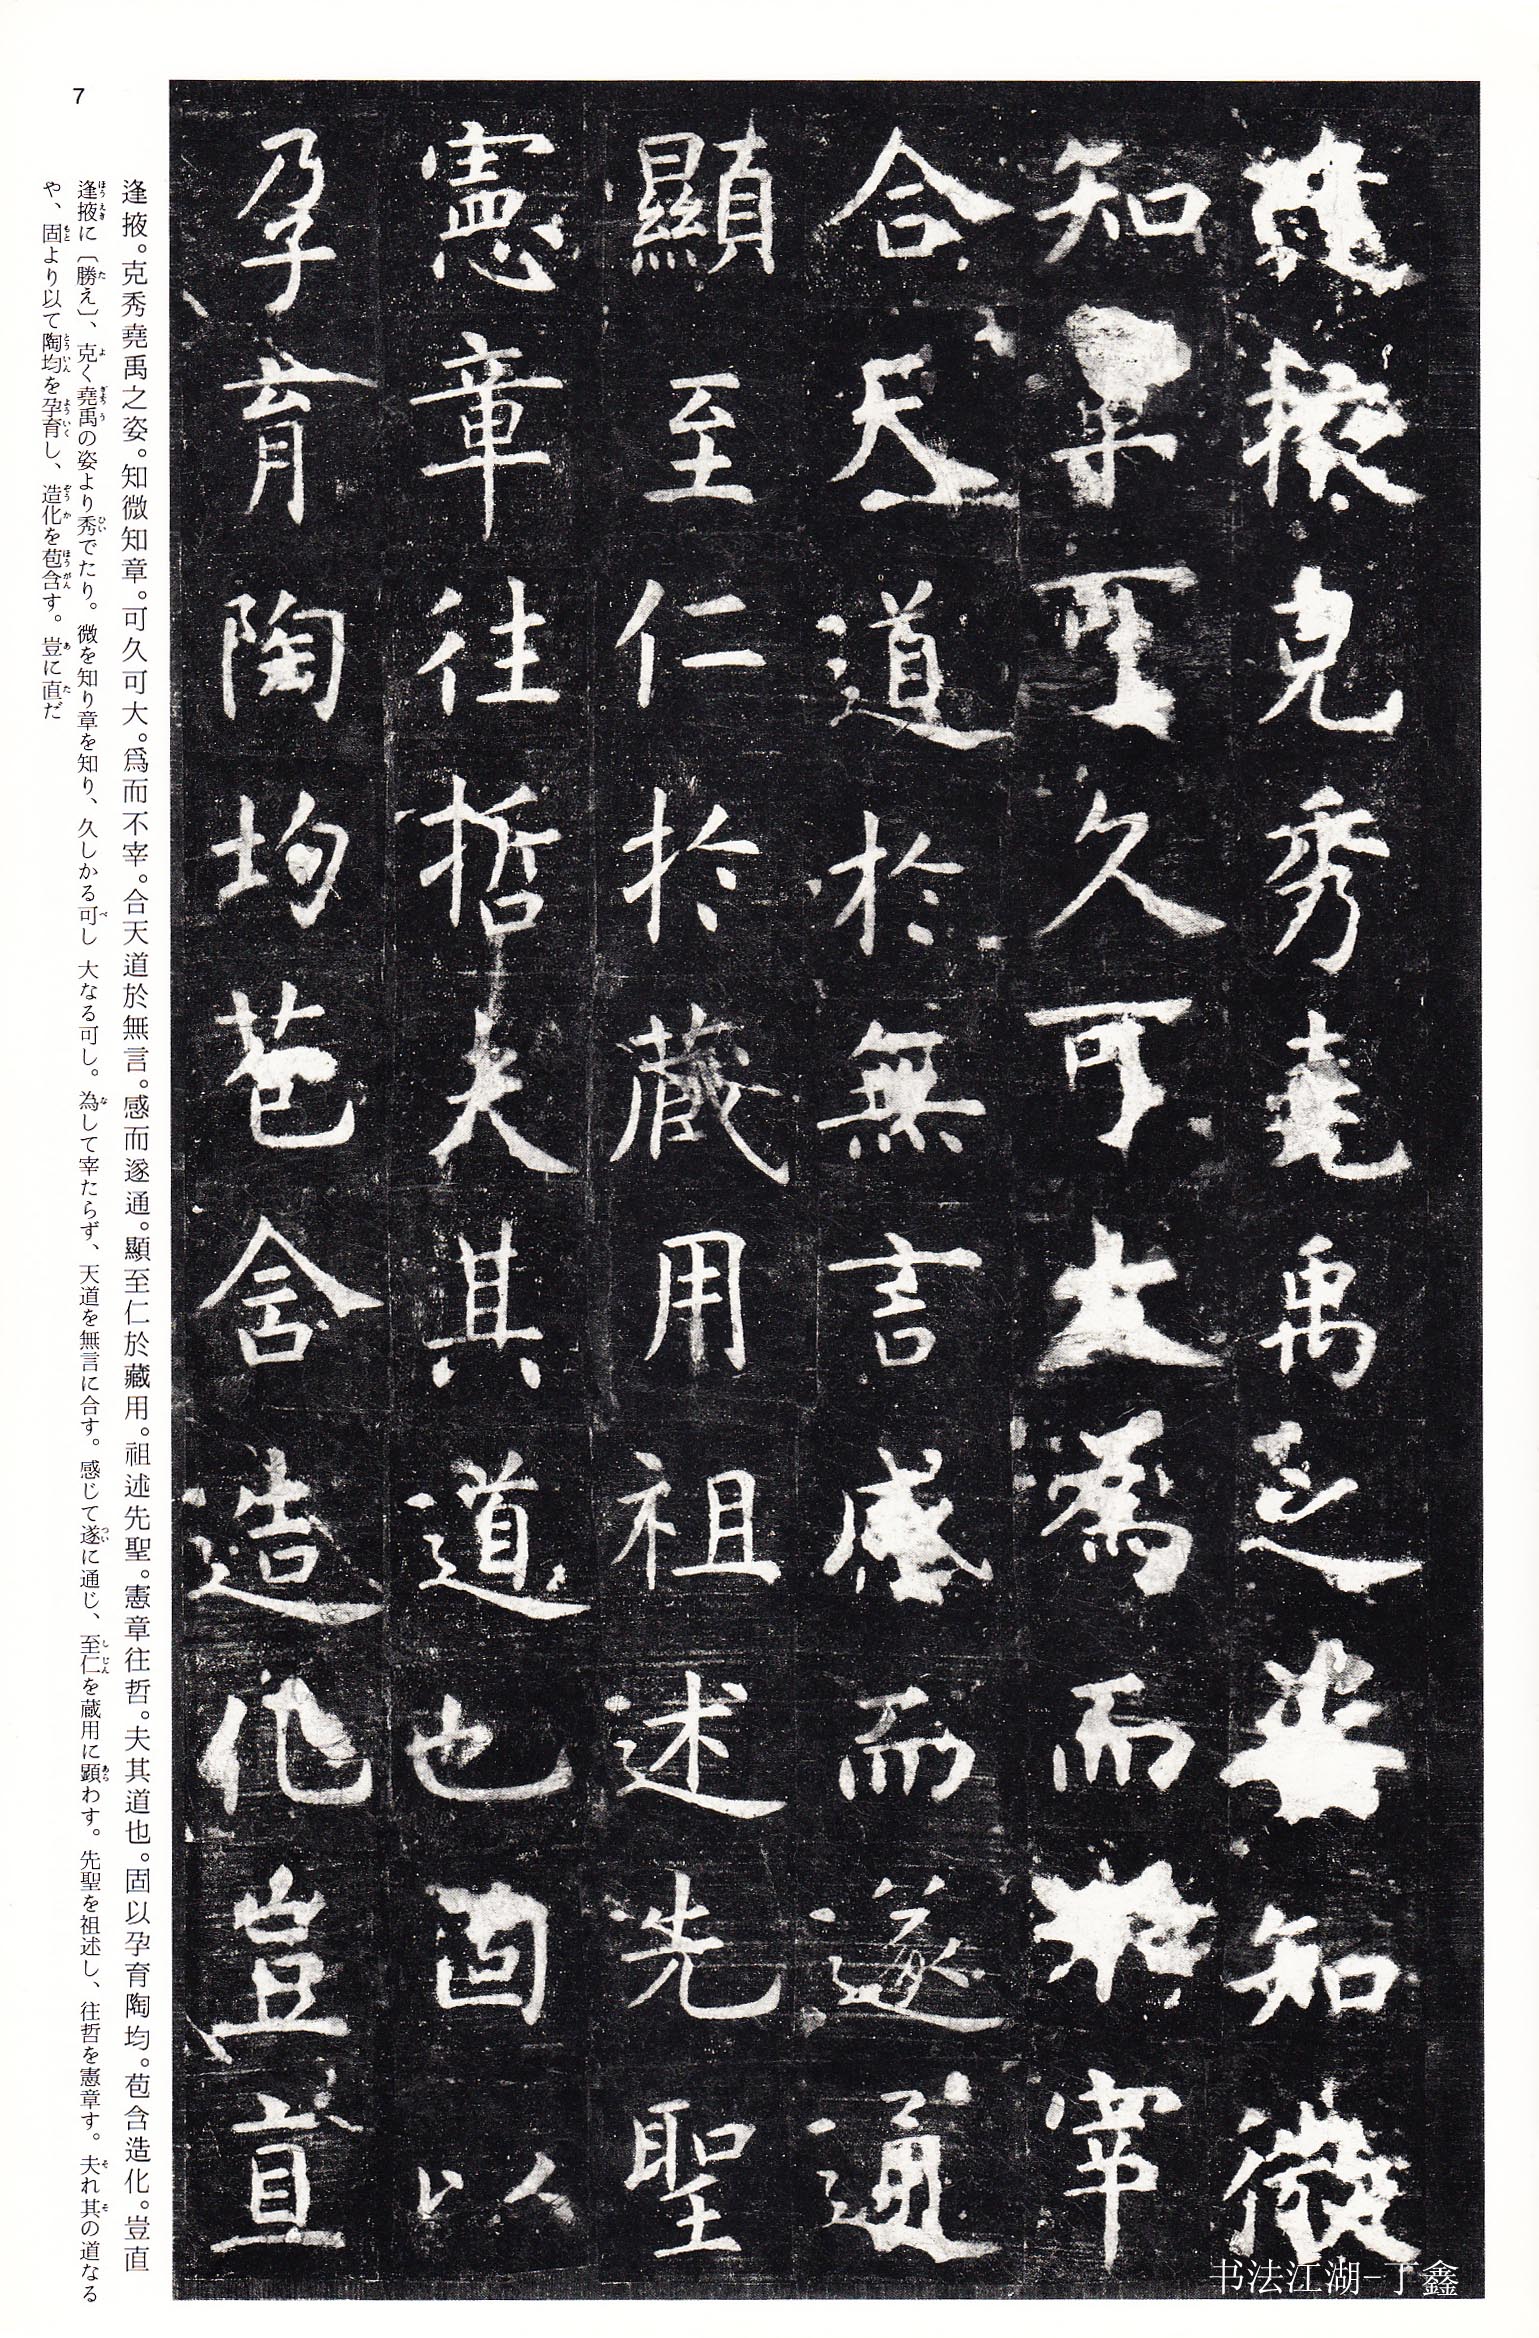 逢掖克秀堯禹之姿知微
知章可久可大為而不宰
合天道於無言感而遂通
顯至仁於藏用祖述先聖
憲章往哲夫其道也固以
孕育陶均苞含造化豈直
逢掖。克秀堯禹之姿。知微知章。可久可大。爲而不宰。合天道於無言。感而遂通。顯至仁於藏用。祖述先聖。憲章往哲。夫其道也。固以孕育陶均。苞含造化。豈直
逢掖に〔勝え〕、克く堯禹の姿より秀でたり。微を知り章を知り、久しかる可し 大なる可し。為して宰たらず、天道を無言に合す。感じて遂に通じ、至仁を蔵用に顕わす。先聖を祖述し、往哲を憲章す。夫れ其の道なる
や、固より以て陶均を孕育し、造化を苞含す。豈に直だ
7
书法江湖-丁鑫